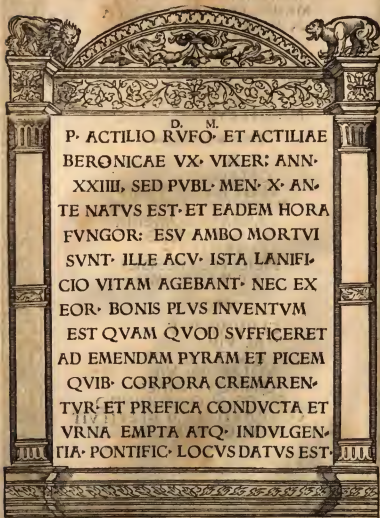 D. M.
P· ACTILIO RVFO· ET ACTILIAE
BERONICAE VX· VIXER: ANN·
XXIIII, SED PVBL· MEN· X· AN·
TE NATVS EST· ET EADEM HORA
FVNGOR: ESV AMBO MORTVI
SVNT· ILLE ACV· ISTA LANIFI·
CIO VITAM AGEBANT· NEC EX
EOR· BONIS PLVS INVENTVM
EST QVAM QVOD SVFFICERET
AD EMENDAM PYRAM ET PICEM
QVIB· CORPORA CREMAREN·
TVR· ET PREFICA CONDVCTA ET
VRNA EMPTA ATQ· INDVLGEN·
TIA· PONTIFIC· LOCVS DATVS EST·